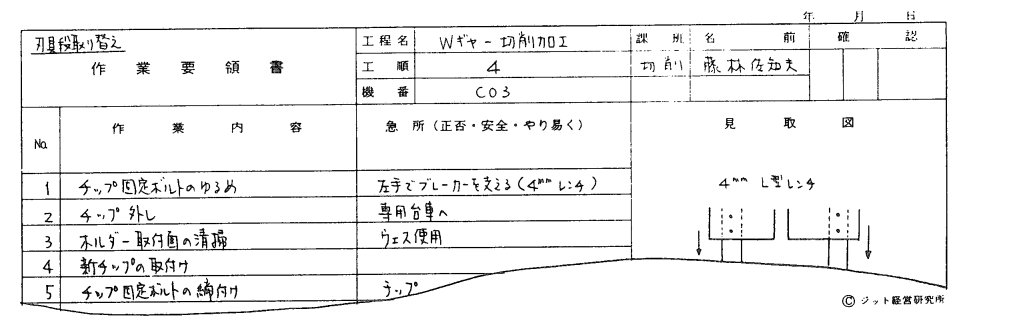 年 月 日
刃具段取り替え
作業要領書
工程名 Wギャー切削加工
工順 4
機番 C03
課班 名前 確認
切削 藤林佐知夫
No. 作業内容 急所(正否・安全・やり易く) 見取図
1 チップ固定ボルトのゆるめ 左手でブレーカーを支える(4mmレンチ)
2 チップ外し 専用台車へ
3 ホルダー取付面の清掃 ウェス使用
4 新チップの取付け
5 チップ固定ボルトの締付け ラップ
4mm L型レンチ
© ジット経営研究所